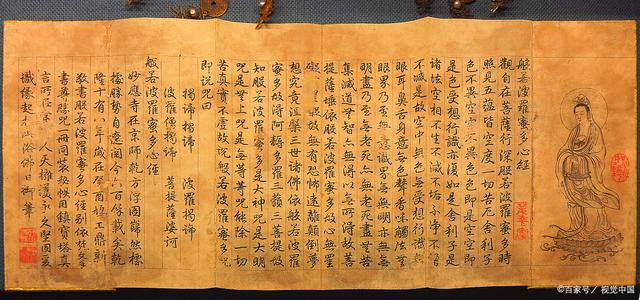 般若波羅蜜多心經
觀自在菩薩行深般若波羅蜜多時
照見五蘊皆空度一切苦厄舍利子
色不異空空不異色色即是空空即
是色受想行識亦復如是舍利子是
諸法空相不生不滅不垢不淨不增
不減是故空中無色無受想行識無
眼耳鼻舌身意無色聲香味觸法無
眼界乃至無意識界無無明亦無無
明盡乃至無老死亦無老死盡無苦
集滅道無智亦無得以無所得故菩
提薩埵依般若波羅蜜多故心無罣
礙故無有恐怖遠離顛倒夢
想究竟涅槃三世諸佛依般若波羅
蜜多故得阿耨多羅三藐三菩提故
知般若波羅蜜多是大神咒是大明
咒是無上咒是無等等咒能除一切
苦真實不虛故說般若波羅蜜多咒
即說咒曰
揭諦揭諦 波羅揭諦
波羅僧揭諦 菩提薩婆訶
般若波羅蜜多心經
妙應寺在京師乾方浮圖巋然標
據勝勢自遼閱今六百餘載矣乾
隆十有八年歲在癸酉鳩工鼎新
敬書般若波羅蜜多心經別依
書尊勝咒一冊同裝秘帙用鎮寶塔真
言所在 人天擁護永久堅固爰
識緣起 浴佛日御筆
©百家号／视觉中国